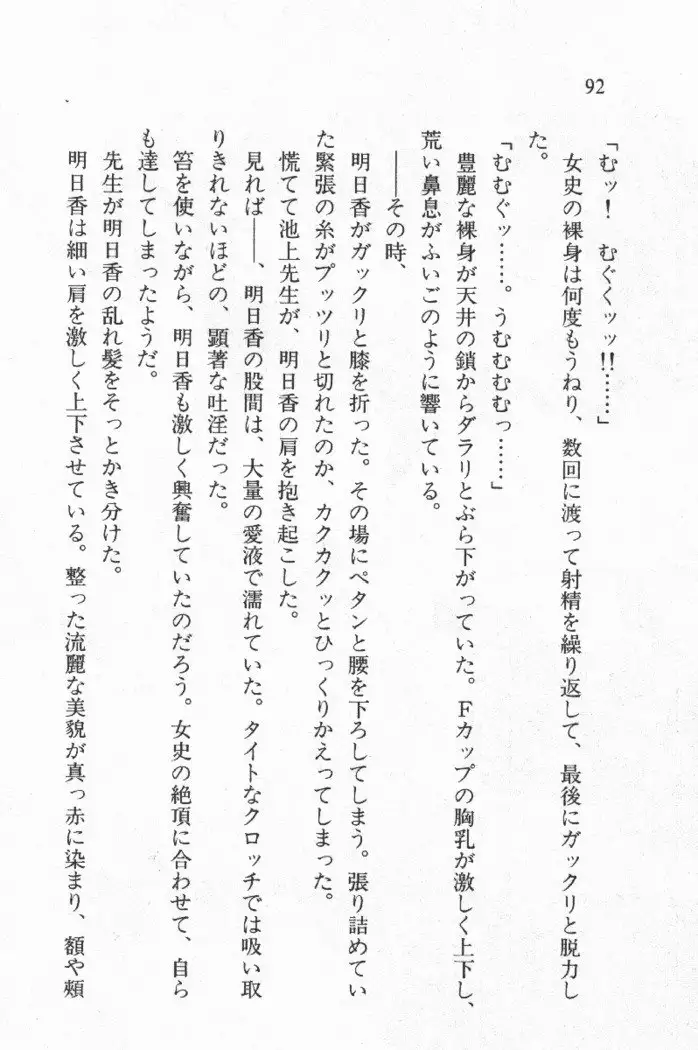 92
「むッ!　むぐくッッ!!……」
女史の裸身は何度もうねり、数回に渡って射精を繰り返して、最後にガックリと脱力し
た。
「むむぐッ……。うむむむむっ……」
豊麗な裸身が天井の鎖からダラリとぶら下がっていた。Fカップの胸乳が激しく上下し、
荒い鼻息がふいごのように響いている。
――その時、
明日香がガックリと膝を折った。その場にペタンと腰を下ろしてしまう。張り詰めてい
た緊張の糸がプッツリと切れたのか、カクカクッとひっくりかえってしまった。
慌てて池上先生が、明日香の肩を抱き起こした。
見れば――、明日香の股間は、大量の愛液で濡れていた。タイトなクロッチでは吸い取
りきれないほどの、顕著な吐淫だった。
笞を使いながら、明日香も激しく興奮していたのだろう。女史の絶頂に合わせて、自ら
も達してしまったようだ。
先生が明日香の乱れ髪をそっとかき分けた。
明日香は細い肩を激しく上下させている。整った流麗な美貌が真っ赤に染まり、額や頰